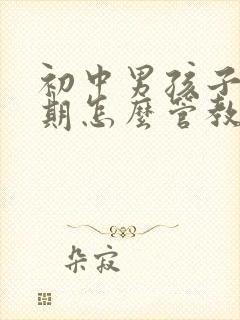 初中男孩子
期怎麼管教
朵寂